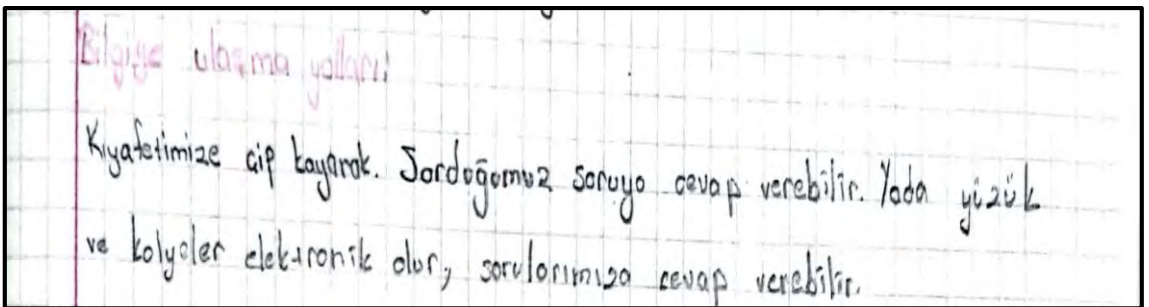 Bilgiye ulaşma yolları:
Kıyafetimize çip koyarak. Sorduğumuz soruya cevap verebilir. Yada yüzük
ve kolyeler elektronik olur, sorularımıza cevap verebilir.